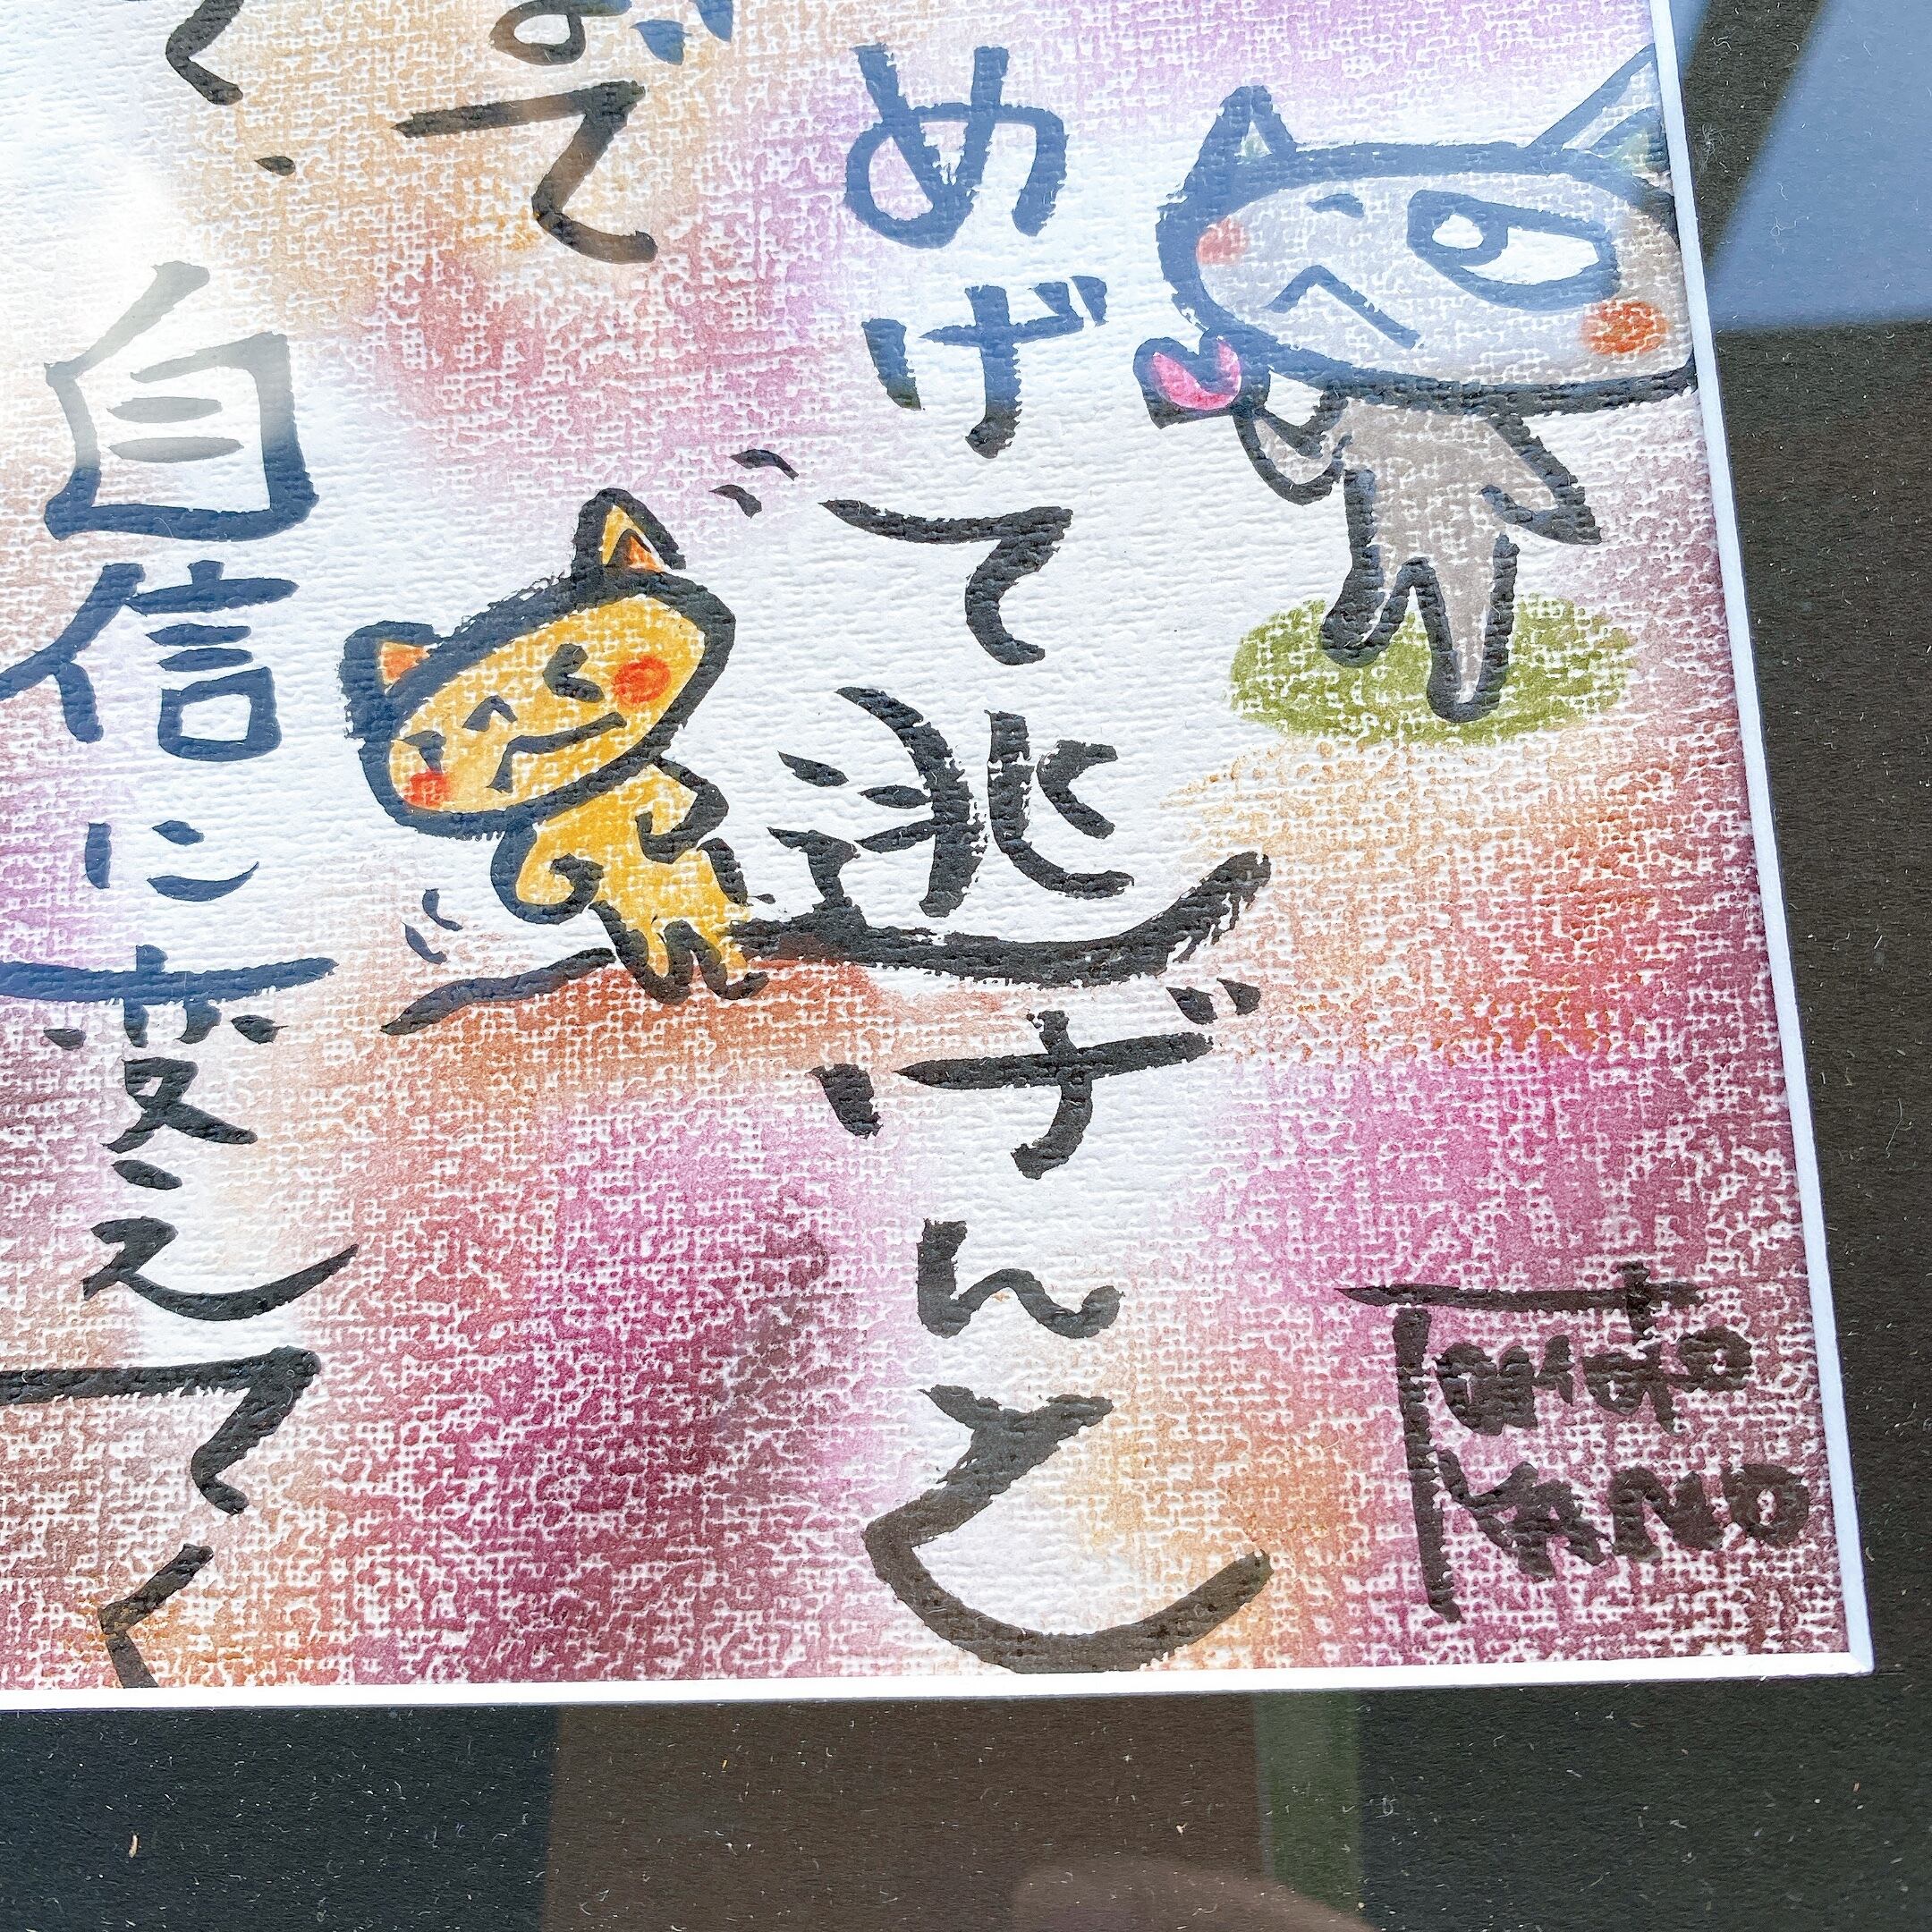 めげて逃げんと
て
自信に変えてく
Tomoto
KANO